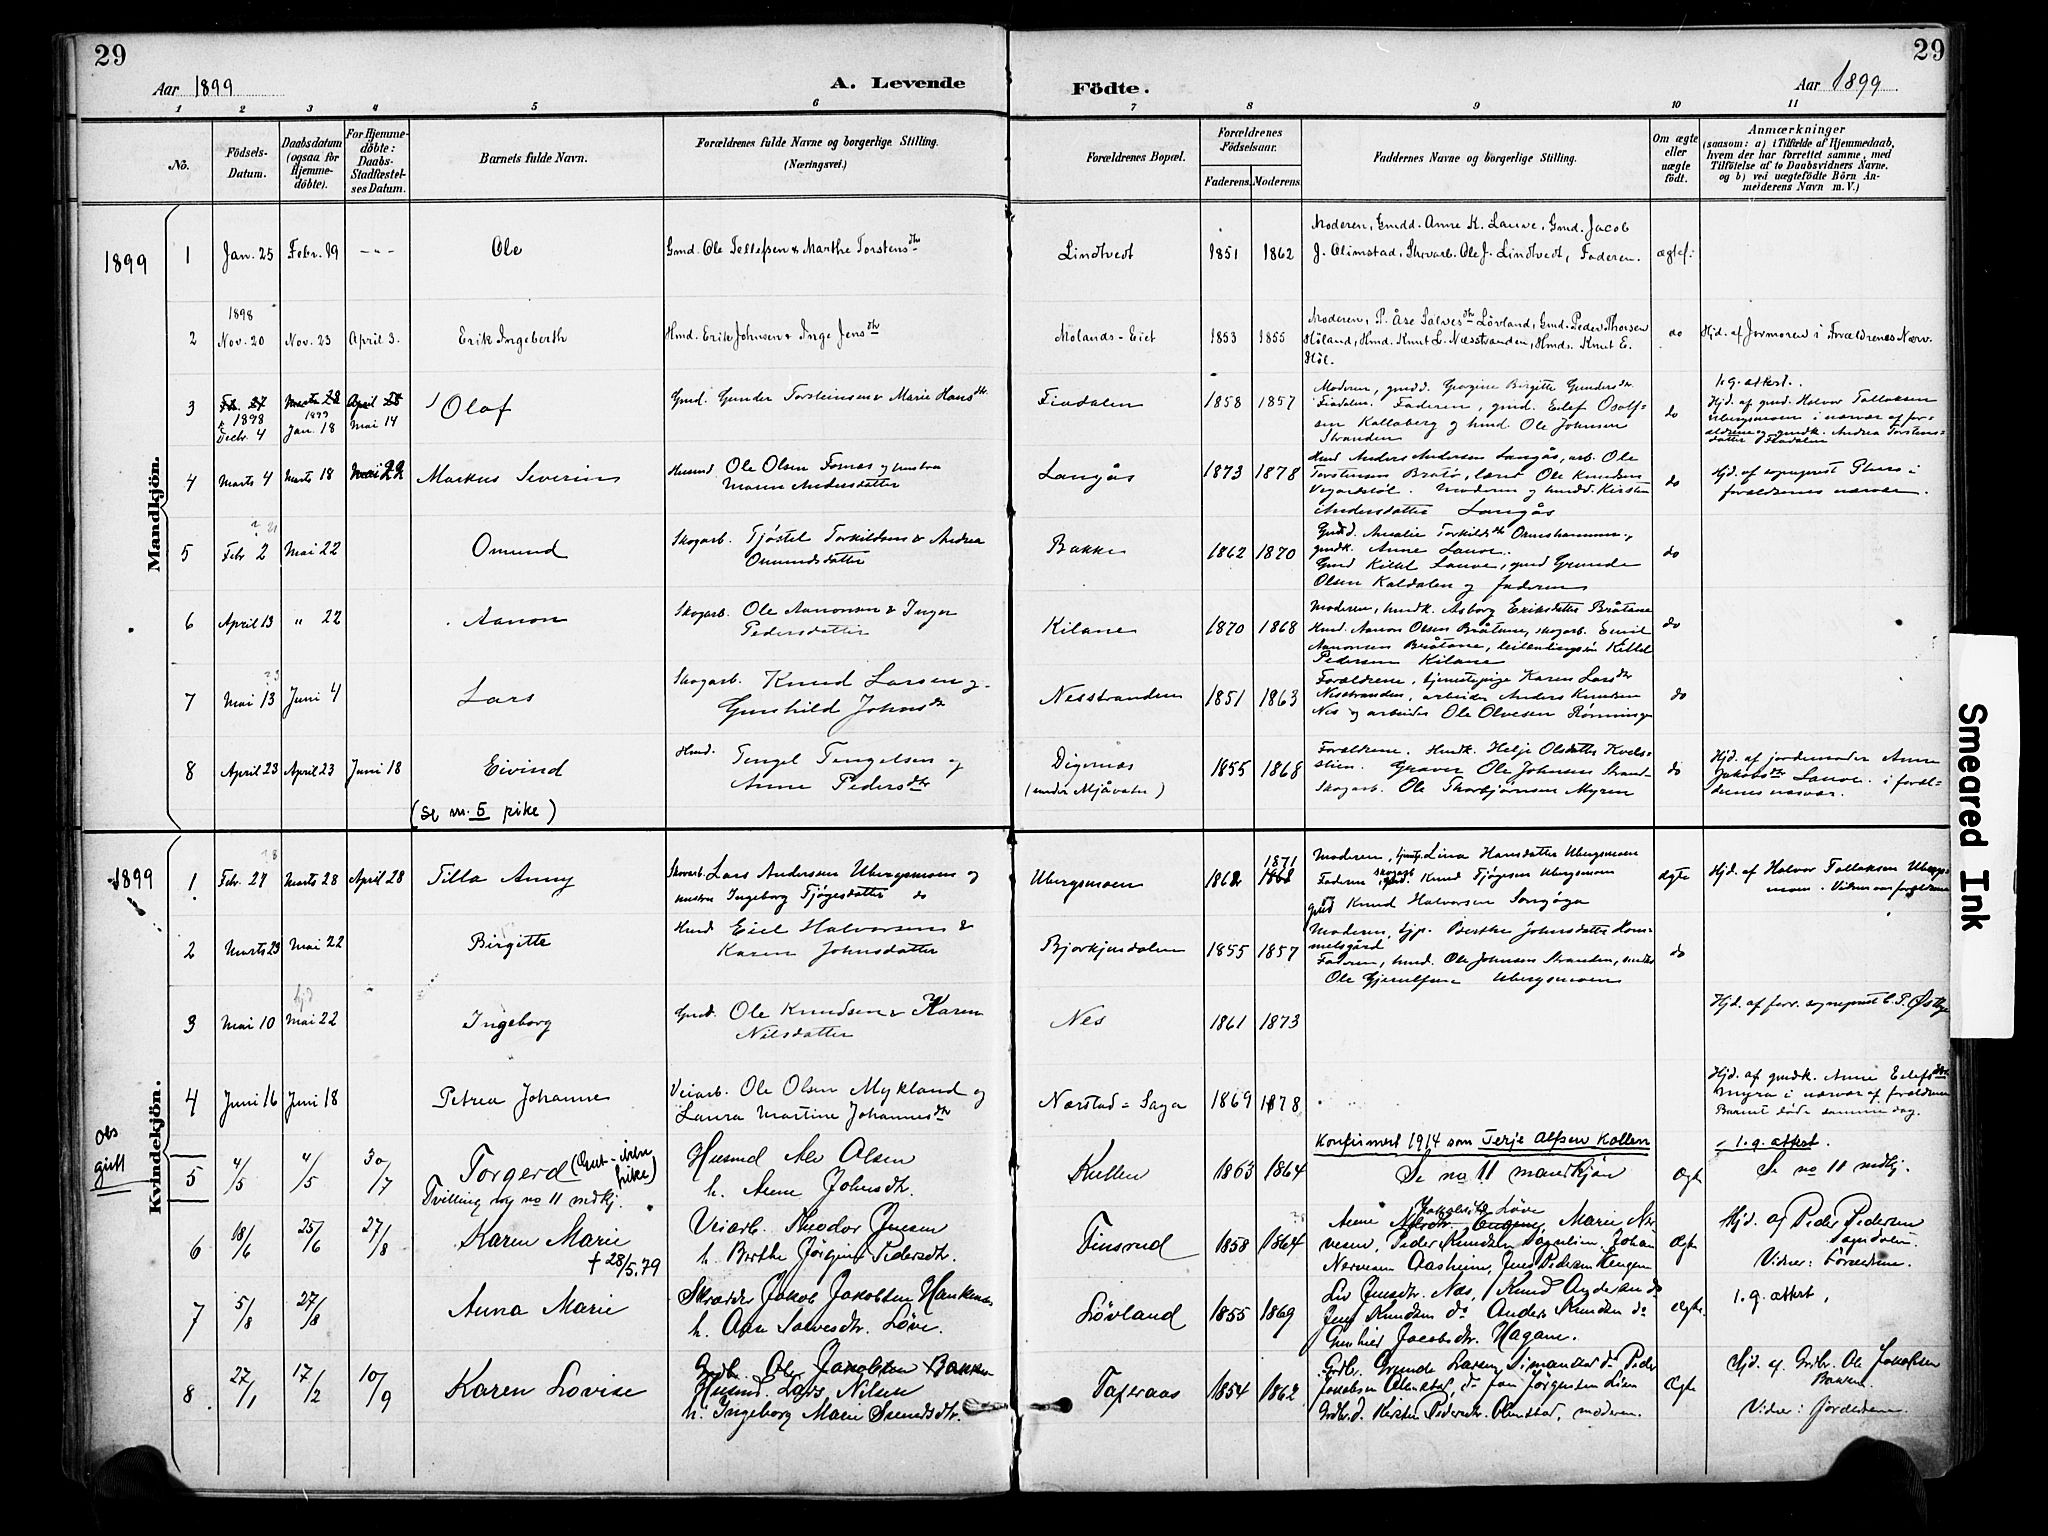 29
29
Aar 1899
A. Levende
Födte.
Aar 1899
1 2 3 4 5 6 7 8 9 10 11
No.
Födsels-
Datum.
Daabsdatum
(ogsaa for
Hjemme-
döbte).
For Hjemme-
döbte:
Daabs-
Stadfæstel-
ses Datum.
Barnets fulde Navn.
Forældrenes fulde Navne og borgerlige Stilling.
(Næringsvei.)
Forældrenes Bopæl.
Forældrenes
Födselsaar.
Faderens. Moderens.
Faddernes Navne og borgerlige Stilling.
Om ægte
eller
uægte
födt.
Anmærkninger
(saasom: a) i Tilfælde af Hjemmedaab,
hvem der har forrettet samme, med
Tilföielse af to Daabsvidners Navne.
og b) ved uægtefödte Börn An-
melderens Navn m. V.)
Mandkjön.
1899
1 Jan. 25 Febr. 19 - - - Ole
Gmd. Ole Tellefsen & Marthe Torstensdtr
Lindtvedt 1851 1862
Moderen, Gmdd. Anne K. Lauve, Gmd. Jacob
J. Olimstad, Skovarb. Ole J. Lindtvedt, Faderen.
ægtef:
2 1898
Nov. 20 Nov. 23 April 3. Erik Ingeberth
Hmd. Erik Johnsen & Inge Jensdtr
Molands-Eiet 1853 1855
Moderen, P. Åse Salvesdtr Lövland, Gmd. Peder Thorsen
Höland, Hmd. Knut L. Næsstranden, Hmds. Knut E.
Höl.
do
Hjd. af Jormoren i Forældrenes Nærv.
3 Fb. 27 Marts 28 April 28
1898 1899
Decbr. 4 Jan. 18 Mai 14
Olaf
Gmd. Gunder Torsteinsen & Marie Hansdtr.
Fiadalen 1858 1857
Moderen, gmdd. Georgine Birgitte Gundersdtr
Fiadalen. Faderen, gmd. Eilef Osolf-
sen Kallaberg og hmd. Ole Johnsen
Stranden
do
l.g. attest.
Hjd. af gmd. Halvor Tallaksen
Ubergsmoen i nærvær af for-
ældrene og gmdk. Andrea Torstens-
datter Fiadalen
4 Marts 4 Marts 18 Mai 22 Markus Severin
Husmd Ole Olsen Fosnæs og hustru
Maren Andersdatter
Langås 1873 1878
Hmd Anders Andersen Langås, arb. Ole
Torstensen Bratö, lærer Ole Knudsen
Vegardstöl. Moderen og hmdd. Kirsten
Andersdatter Langås
do
Hjd. af sogneprest Thurs i
forældrenes nærvær.
5 Febr 2 Mai 22 Omund
Skogarb. Tjöstel Torkildsen & Andrea
Omundsdatter
Bakke 1862 1870
Gmdd. Amalie Torkildsdtr Ormshammer,
gmdk. Anne Lauve.
Gmd Kittel Lauve, gmd Grunde
Olsen Kaldalen og faderen
do
6 April 13 " 22 Aanon
Skogarb. Ole Aanonsen & Inger
Pedersdatter
Kilane 1870 1868
Moderen, hmdk. Asborg Eriksdatter Bråtane
Hmd. Aanon Olsen Bråtane, skogarb. Emil
Aanonsen Bråtane, leilendingsön Kittel
Pedersen Kilane
do
7 Mai 13 Juni 4 Lars
Skogarb. Knud Larsen og
Gunhild Johnsdtr
Nesstranden 1851 1863
Forældrene, tjenestepige Karen Larsdtr
Nesstranden, arbeider Anders Knudsen
Nes og arbeider Ole Olvesen Rönningen
do
8 April 23 April 23 Juni 18 Eivind
Hmd. Tengel Tengelsen og
Anne Pedersdtr
Digernes
(under Mjåvatn)
1855 1868
Forældrene. Hmdk. Helje Olsdatter Kveld-
stien. Graver Ole Johnsen Strand-
Skogarb. Ole Thorbjörnsen Myren
do
Hjd. af jordemoder Anne
Jakobsdtr Lauve i foræl-
drenes nærvær.
(se nr. 5 pike)
Kvindekjön.
1899
1 Febr. 27 Marts 28 April 28 Tilla Anny
Skovarb. Lars Andersen Ubergsmoen og
hustru Ingeborg Tjögesdatter do
Ubergsmoen 1862 1871 1868
Moderen, tjenestp. Lina Hansdatter Ubergsmoen
Faderen, skogarb. Knud Tjögesen Ubergsmoen
gmd Knud Halvorsen Songöga
Ægte
Hjd. af Halvor Tallaksen Ubergs-
moen. Vidner var forældrene
2 Marts 23 Mai 22 Birgitte
Hmd Eiel Halvorsen &
Karen Johnsdatter
Bjorkjusdalen 1855 1857
Moderen, tjp. Berthe Johnsdatter Hom-
melsgård
Faderen, hmd. Ole Johnsen Stranden, smed
Ole Gjerulfsen Ubergsmoen
do
3 Mai 10 hjd Mai 22 Ingeborg
Gmd. Ole Knudsen & Karen
Nilsdatter
Nes 1861 1873
Hjd. af forr. sogneprest C. P. Östbye
4 Juni 16 Juni 18 Petrea Johanne
Veiarb. Ole Olsen Mykland og
Laura Martine Johannesdtr
Nærstad-Saga 1869 1878
Hjd. af gmdk. Anne Eilefsdtr
Myra i nærvær af forældrene
Barnet döde samme dag.
obs
gutt
5 4/5 4/5 30/7 Torgerd (Gut - ikke pike)
Tvilling og no 11 mdkj.
Husmd Alv Olsen
h. Anne Johnsdtr.
Kullen 1863 1864
Konfirmert 1914 som Terje Alfsen Kollen
Se no 11 mandkjön
Ægte
l.g. attest.
Se no 11 mdkj.
6 18/6 25/6 27/8 Karen Marie
† 28/5.79
Veiarb. Theodor Jensen
h. Berthe Jörgine Pedersdtr.
Finsrud 1858 1864
Anne Jakobsdtr. Löve Marie Ner-
vesen, Peder Knudsen Johan
Nervesen Aasheim, Jens Pedersen
Ægte
Hjd. af Peder Pedersen
Vidner: Forældrene.
7 5/8 27/8 Anna Marie
Skræder Jakob Jakobsen
h. Aase Salvesdtr. Löve.
Lövland 1855 1869
Liv Jensdtr. Næs, Knud Andersen do
Jens Knudsen do Anders Knudsen do
Gunhild Jacobsdtr. Hagane.
Ægte
l.g. attest.
8 27/1 17/2 10/9 Karen Lovise
Grdb. Ole Jakobsen Bakken
Husmd. Lars Nilsen
h. Ingeborg Marie Svendsdtr.
Taxeraas 1854 1862
Grdbr. Grunde Larsen Simonstad do Peder
Jakobsen Olimstad, do Jon Jörgensen Lien
Grdbr.d. Kirsten Pedersdtr. Olimstad, moderen.
Ægte
Hjd. af Grdbr. Ole Jakobsen
Bakken.
Vidner: Forældrene.
Smeared Ink